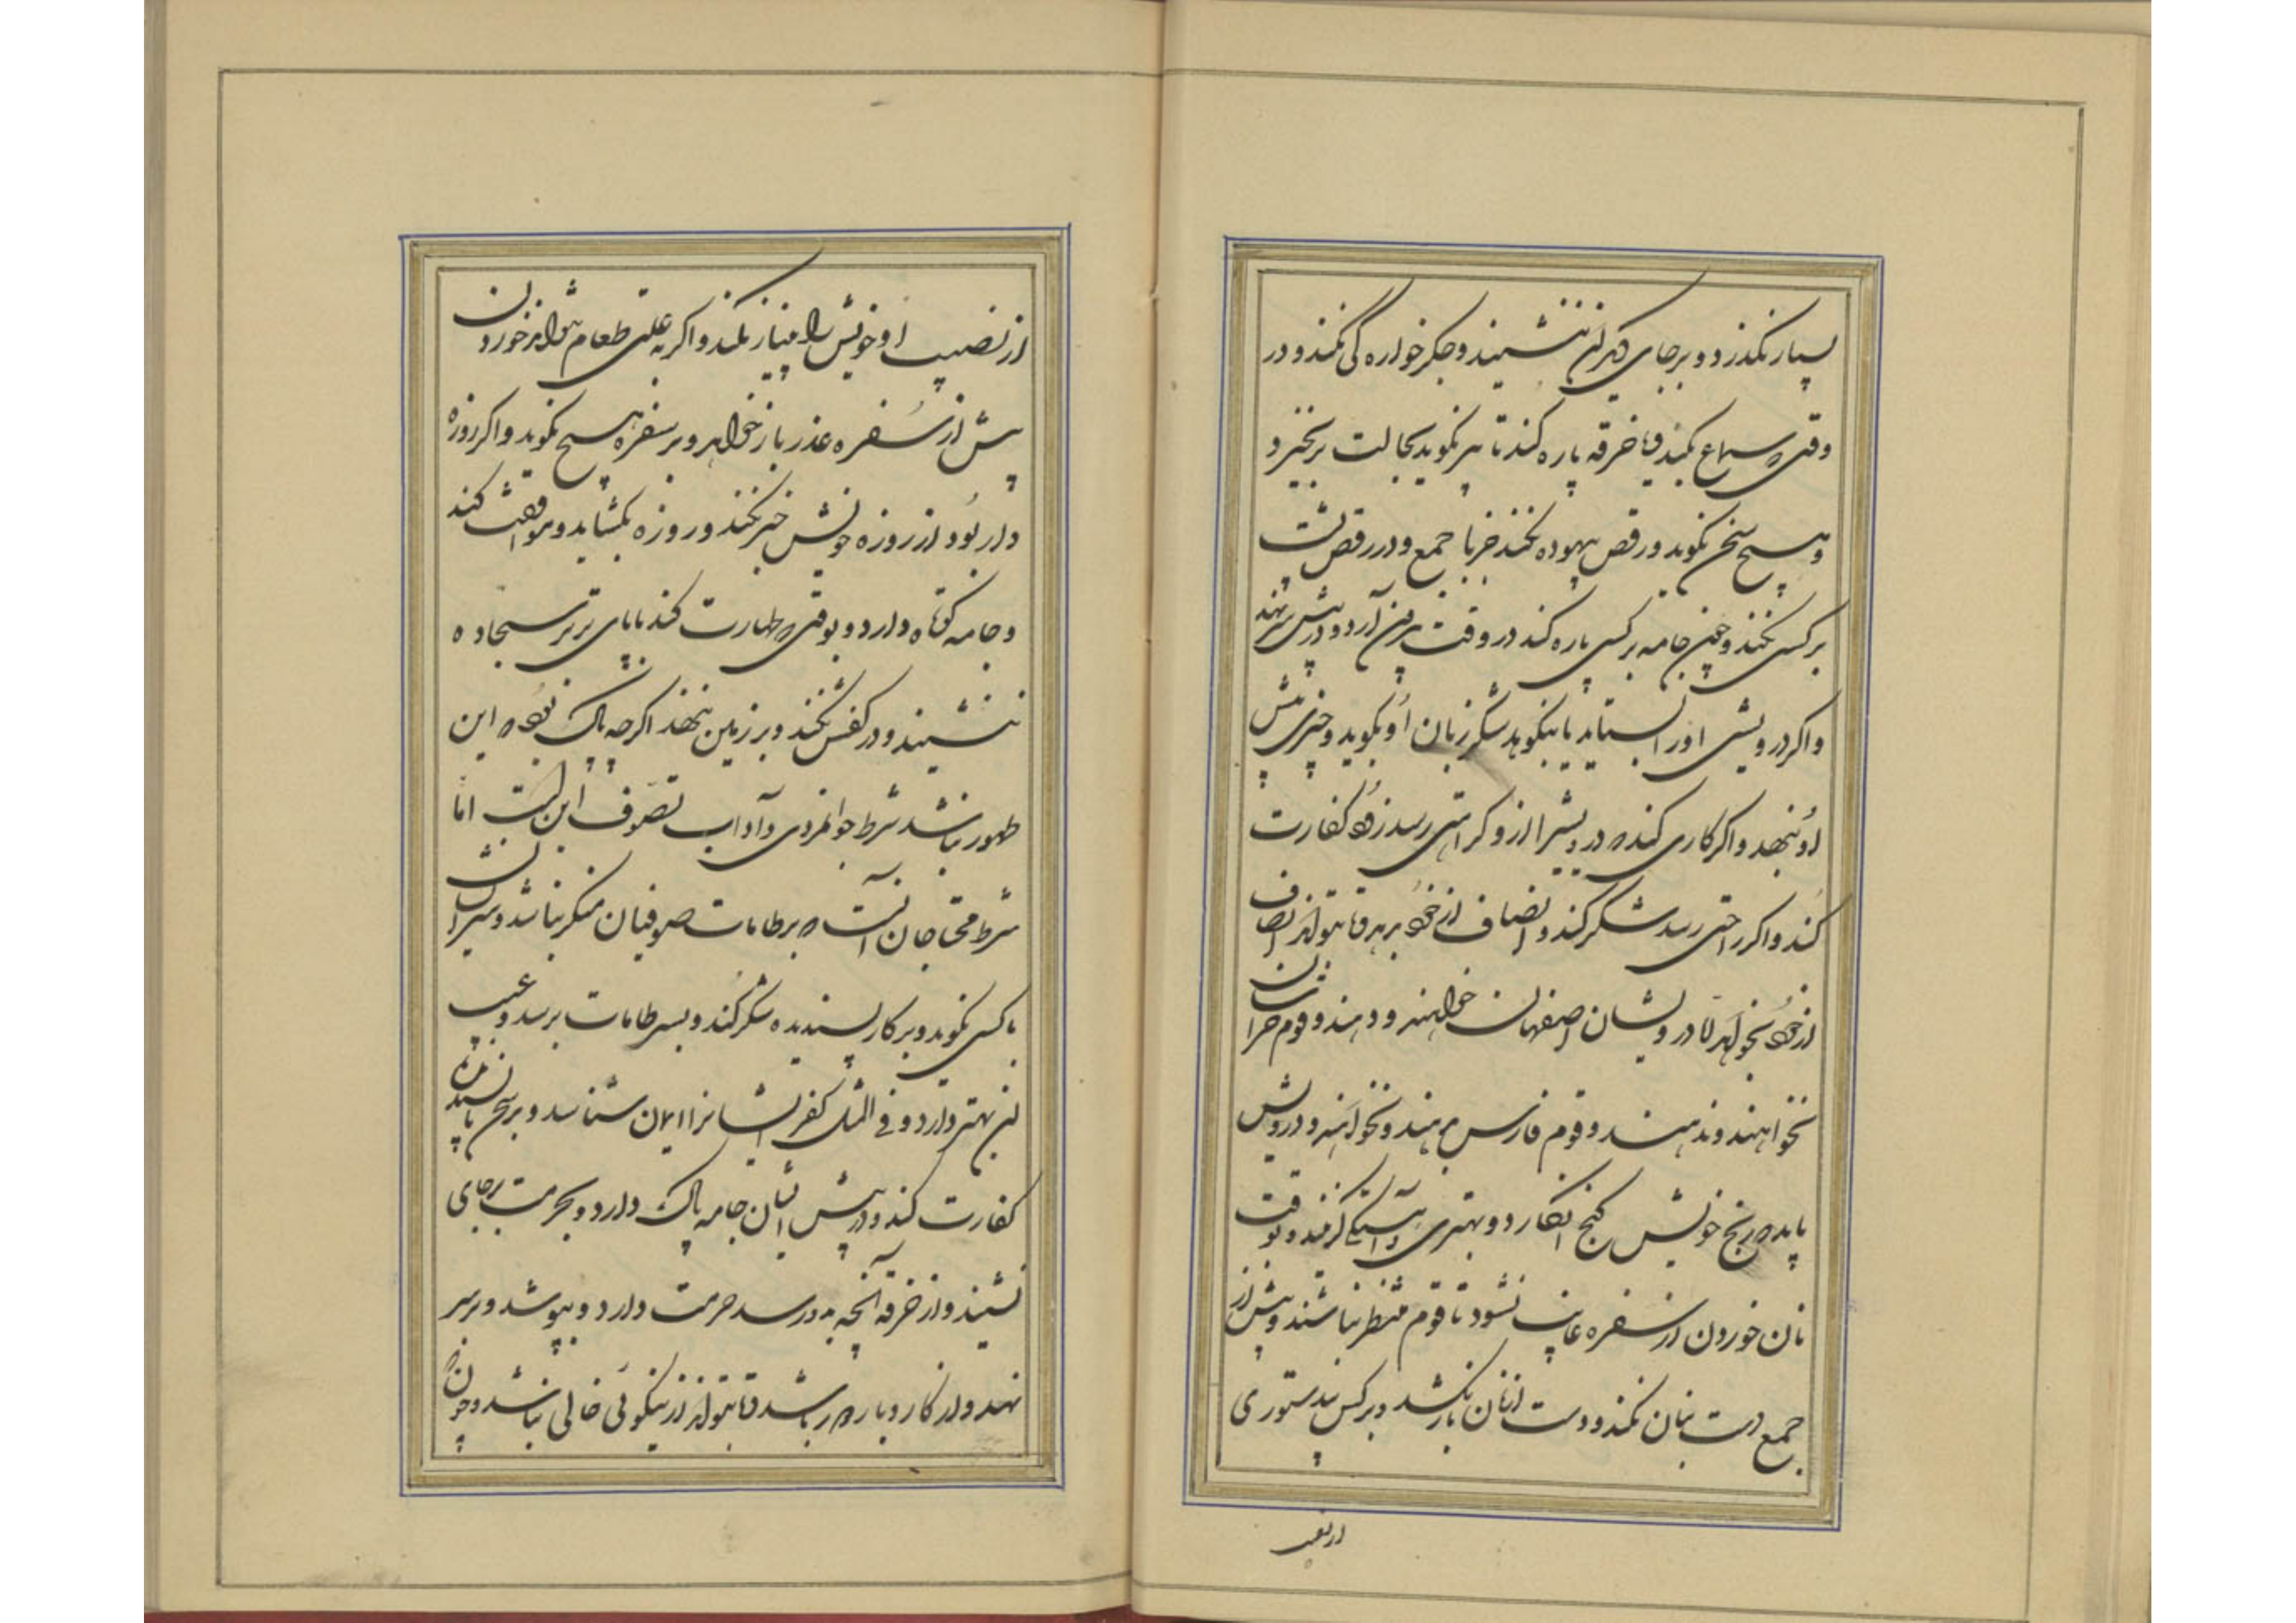 بسیار نکذرد و بر جای دیکران ننشیند و جکر خواره کی نکند و در
وقتی که سماع کنند خرقه پاره نکند تا پیر نکوید بحالت برنخیزد
و هیچ سخن نکوید و رقص بیهوده نکند جز با جمع و در رقص پشت
بر کسی نکند و چون جامه بر کسی پاره کند در وقت بیرون آرد و در پیش پیر نهد
و اکر درویشی او را بستاید یا بنکوهد شکر زبان او بکوید و چیزی پیش
او بنهد و اکر کاری کند که درویشیرا از و کراهتی رسد زود کفارت
کند و اکر راحتی رسد شکر کند و انصاف از خود بدهد و تا بتواند انصاف
از خود نخواهد اما درویشان اصفهان خواهند و دهند و قوم خراسان
نخواهند و ندهند و قوم فارس بدهند و نخواهند و درویش
باید که رنج خویش کنج انکارد و بهتری و آهستکی کزیند و بوقت
نان خوردن از سفره غایب نشود تا قوم منتظر نباشند و پیش از
جمع دست بنان نکند و دست از نان باز نکشد و بر کس بدستوری
از نصیب
از نصیب او خویش را امتیاز نکند و اکر به علتی طعام نتواند خوردن
پیش از سفره عذر باز خواهد و بر سفره هیچ نکوید و اکر روزه
دار بود از روزه خویش خبر نکند و روزه بکشاید و موافقت کند
و جامه کوتاه دارد و بوقتی که طهارت کند با پای تر بر سجاده
ننشیند و در کفش نکند و بر زمین ننهد اکرچه پاک بود که این
طهور نباشد شرط جوانمردی و آداب تصوف این است اما
شرط محتاجان آنست که بر طامات صوفیان منکر نباشد و سر ایشان
با کسی نکوید و بر کار پسندیده شکر کند و بسر طامات برسد و عیب
از بهتر دارد و فی المثل کفر ایشانرا ایمان شناسد و بر سخن ناپسندیده
کفارت کند و در پیش ایشان جامه پاک دارد و بحرمت بر جای
نشیند و از خرقه آنچه به و رسد حرمت دارد و بپوشد و بر سر
نهد و از کار و بار دور باشد و تا بتواند از نیکوئی خالی نباشد و چون